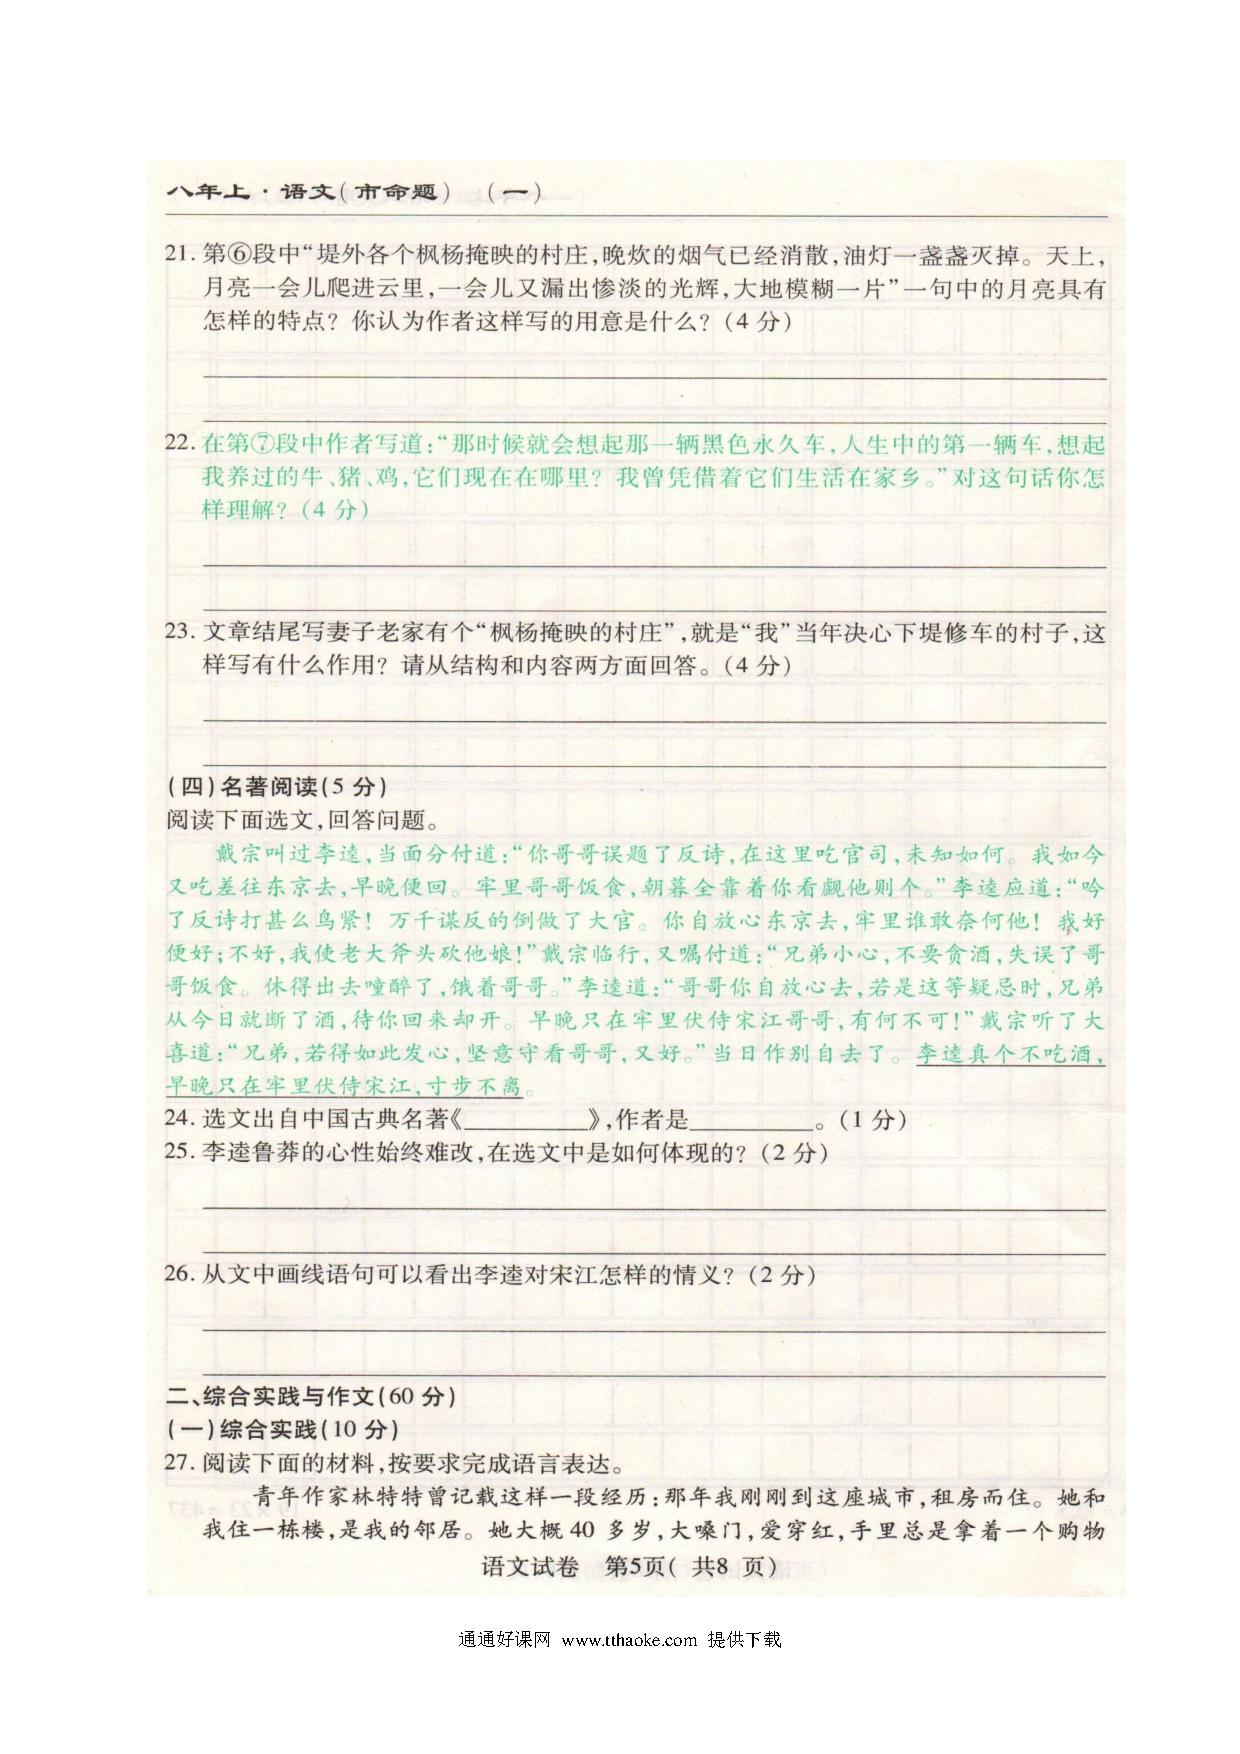 八年上·语文(市命题) (一)
21. 第⑥段中“堤外各个枫杨掩映的村庄,晚炊的烟气已经消散,油灯一盏盏灭掉。天上,
月亮一会儿爬进云里,一会儿又漏出惨淡的光辉,大地模糊一片”一句中的月亮具有
怎样的特点?你认为作者这样写的用意是什么?(4 分)
22. 在第⑦段中作者写道:“那时候就会想起那一辆黑色永久车,人生中的第一辆车,想起
我养过的牛、猪、鸡,它们现在在哪里?我曾凭借着它们生活在家乡。”对这句话你怎
样理解?(4 分)
23. 文章结尾写妻子老家有个“枫杨掩映的村庄”,就是“我”当年决心下堤修车的村子,这
样写有什么作用?请从结构和内容两方面回答。(4 分)
(四)名著阅读(5 分)
阅读下面选文,回答问题。
戴宗叫过李逵,当面分付道:“你哥哥误题了反诗,在这里吃官司,未知如何。我如今
又吃差往东京去,早晚便回。牢里哥哥饭食,朝暮全靠着你看觑他则个。”李逵应道:“吟
了反诗打甚么鸟紧!万千谋反的倒做了大官。你自放心东京去,牢里谁敢奈何他!我好
便好;不好,我使老大斧头砍他娘!”戴宗临行,又嘱付道:“兄弟小心,不要贪酒,失误了哥
哥饭食。休得出去噇醉了,饿着哥哥。”李逵道:“哥哥你自放心去,若是这等疑忌时,兄弟
从今日就断了酒,待你回来却开。早晚只在牢里伏侍宋江哥哥,有何不可!”戴宗听了大
喜道:“兄弟,若得如此发心,坚意守看哥哥,又好。”当日作别自去了。李逵真个不吃酒,
早晚只在牢里伏侍宋江,寸步不离。
24. 选文出自中国古典名著《__________》,作者是__________。(1 分)
25. 李逵鲁莽的心性始终难改,在选文中是如何体现的?(2 分)
26. 从文中画线语句可以看出李逵对宋江怎样的情义?(2 分)
二、综合实践与作文(60 分)
(一)综合实践(10 分)
27. 阅读下面的材料,按要求完成语言表达。
青年作家林特特曾记载这样一段经历:那年我刚刚到这座城市,租房而住。她和
我住一栋楼,是我的邻居。她大概 40 多岁,大嗓门,爱穿红,手里总是拿着一个购物
语文试卷 第5页( 共8 页)
通通好课网 www.tthaoke.com 提供下载